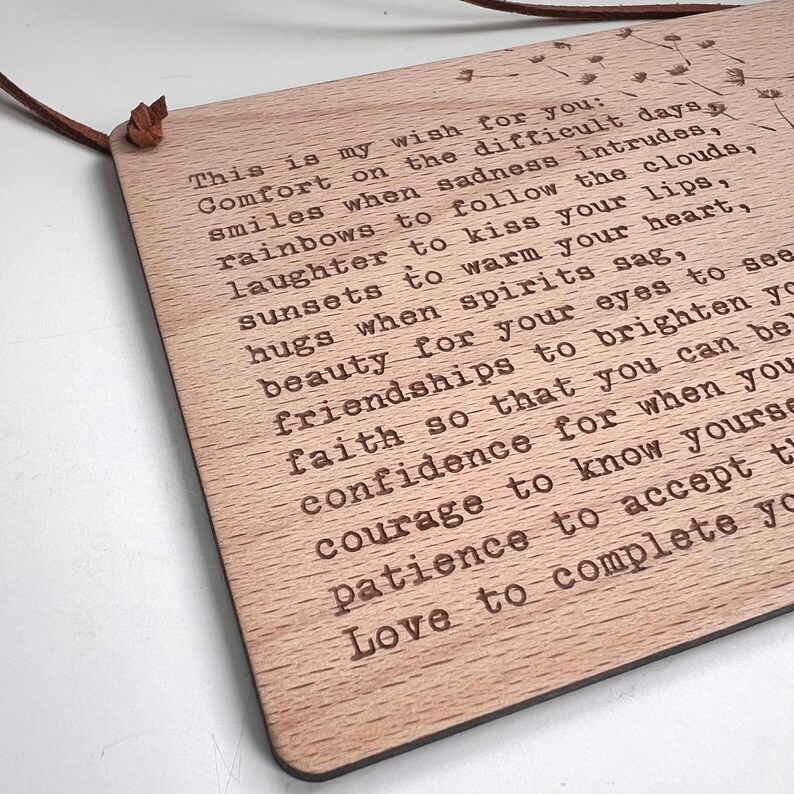 This is my wish for you:
Comfort on the difficult days,
smiles when sadness intrudes,
rainbows to follow the clouds,
laughter to kiss your lips,
sunsets to warm your heart,
hugs when spirits sag,
beauty for your eyes to see
friendships to brighten yo
faith so that you can bel
confidence for when you
courage to know yourse
patience to accept th
Love to complete yo